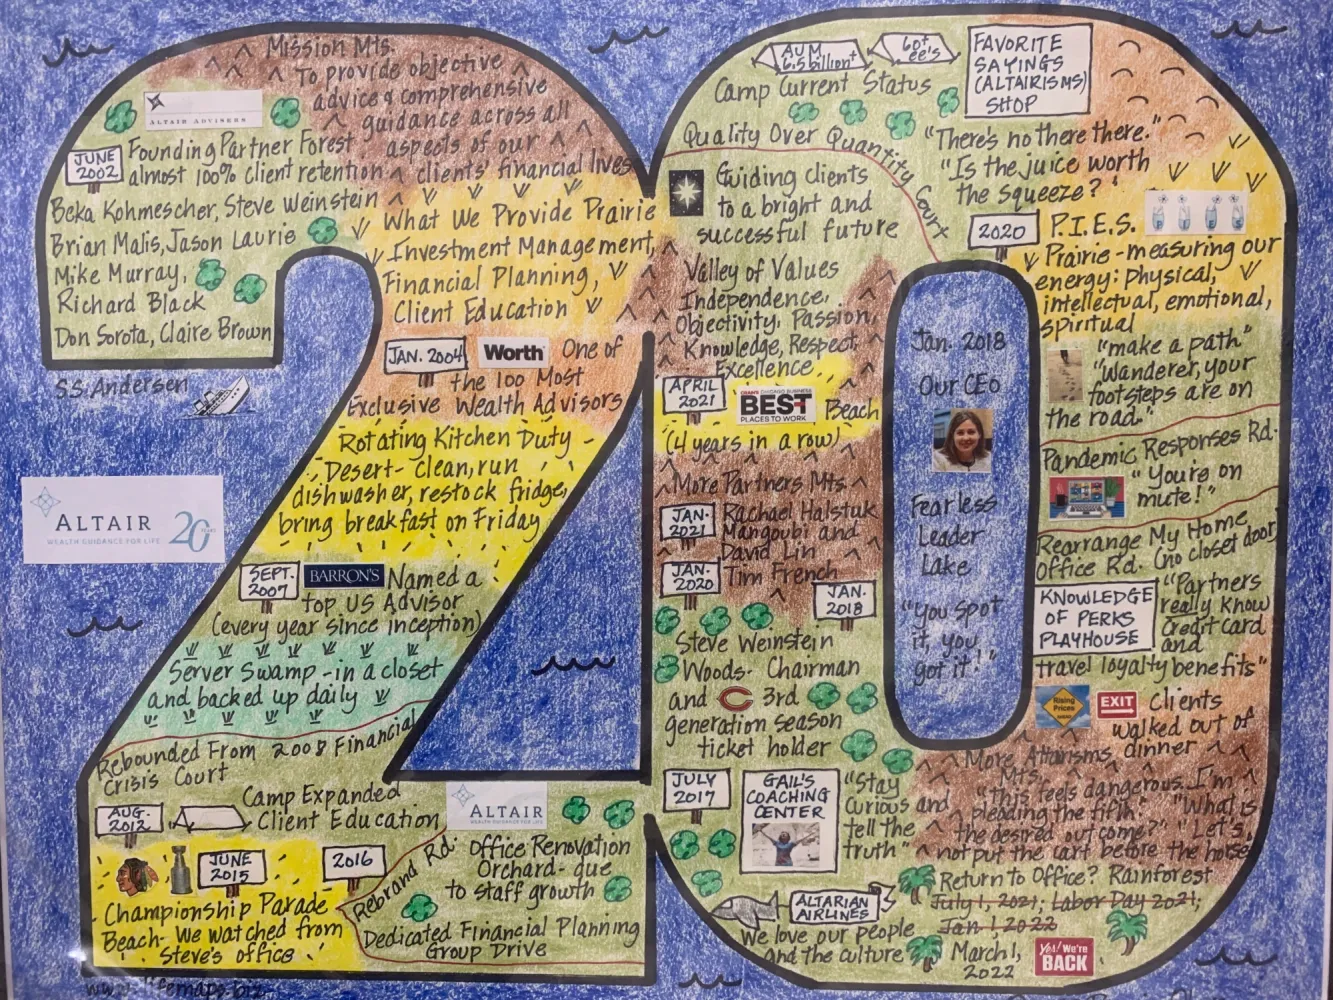 Mission Mts.
To provide objective
advice & comprehensive
guidance across all
aspects of our
clients' financial lives
ALTAIR ADVISERS
JUNE
2002
Founding Partner Forest
almost 100% client retention
Beka Kohmescher, Steve Weinstein
Brian Malis, Jason Laurie
Mike Murray,
Richard Black
Don Sorota, Claire Brown
What We Provide Prairie
Investment Management,
Financial Planning,
Client Education
SS Andersen
JAN. 2004
Worth
One of
the 100 Most
Exclusive Wealth Advisors
Rotating Kitchen Duty
Desert- clean, run
dishwasher, restock fridge,
bring breakfast on Friday
ALTAIR
WEALTH GUIDANCE FOR LIFE
20 YEARS
SEPT.
2007
BARRON'S
Named a
top US Advisor
(every year since inception)
Server Swamp - in a closet
and backed up daily
Rebounded From 2008 Financial
Crisis Court
AUG.
2012
Camp Expanded
Client Education
JUNE
2015
Championship Parade
Beach- We watched from
Steve's office
2016
Rebrand Rd.
ALTAIR
WEALTH GUIDANCE FOR LIFE
Office Renovation
Orchard- due
to staff growth
Dedicated Financial Planning
Group Drive
AUM
6.5 billion+
60+
ee's
Camp Current Status
FAVORITE
SAYINGS
(ALTAIRISMS)
SHOP
Quality Over Quantity Court
Guiding clients
to a bright and
successful future
"There's no there there."
"Is the juice worth
the squeeze?"
2020
P.I.E.S.
P I E S
Prairie - measuring our
energy: physical,
intellectual, emotional,
spiritual
Valley of Values
Independence,
Objectivity, Passion,
Knowledge, Respect,
Excellence
APRIL
2021
CRAIN'S CHICAGO BUSINESS
BEST
PLACES TO WORK
Beach
(4 years in a row)
More Partners Mts.
JAN.
2021
Rachael Halstuk
Mangoubi and
David Lin
JAN.
2020
Tim French
JAN.
2018
Steve Weinstein
Woods- Chairman
and C 3rd
generation season
ticket holder
Jan. 2018
Our CEO
Fearless
Leader
Lake
"You spot
it, you
got it!"
"make a path"
"Wanderer, your
footsteps are on
the road."
Pandemic Responses Rd.
"You're on
mute!"
Rearrange My Home
Office Rd. (no closet door)
KNOWLEDGE
OF PERKS
PLAYHOUSE
"Partners
really know
credit card
and
travel loyalty benefits"
Rising
Prices
AHEAD
EXIT
Clients
walked out of
dinner
More Altairisms
Mts.
"This feels dangerous. I'm
pleading the fifth." "What is
the desired outcome?" "Let's
not put the cart before the horse
JULY
2017
GAIL'S
COACHING
CENTER
"Stay
curious and
tell the
truth"
ALTARIAN
AIRLINES
We love our people
and the culture
Return to Office? Rainforest
July 1, 2021; Labor Day 2021;
Jan 1 2022
March 1,
2022
Yes! We're
BACK